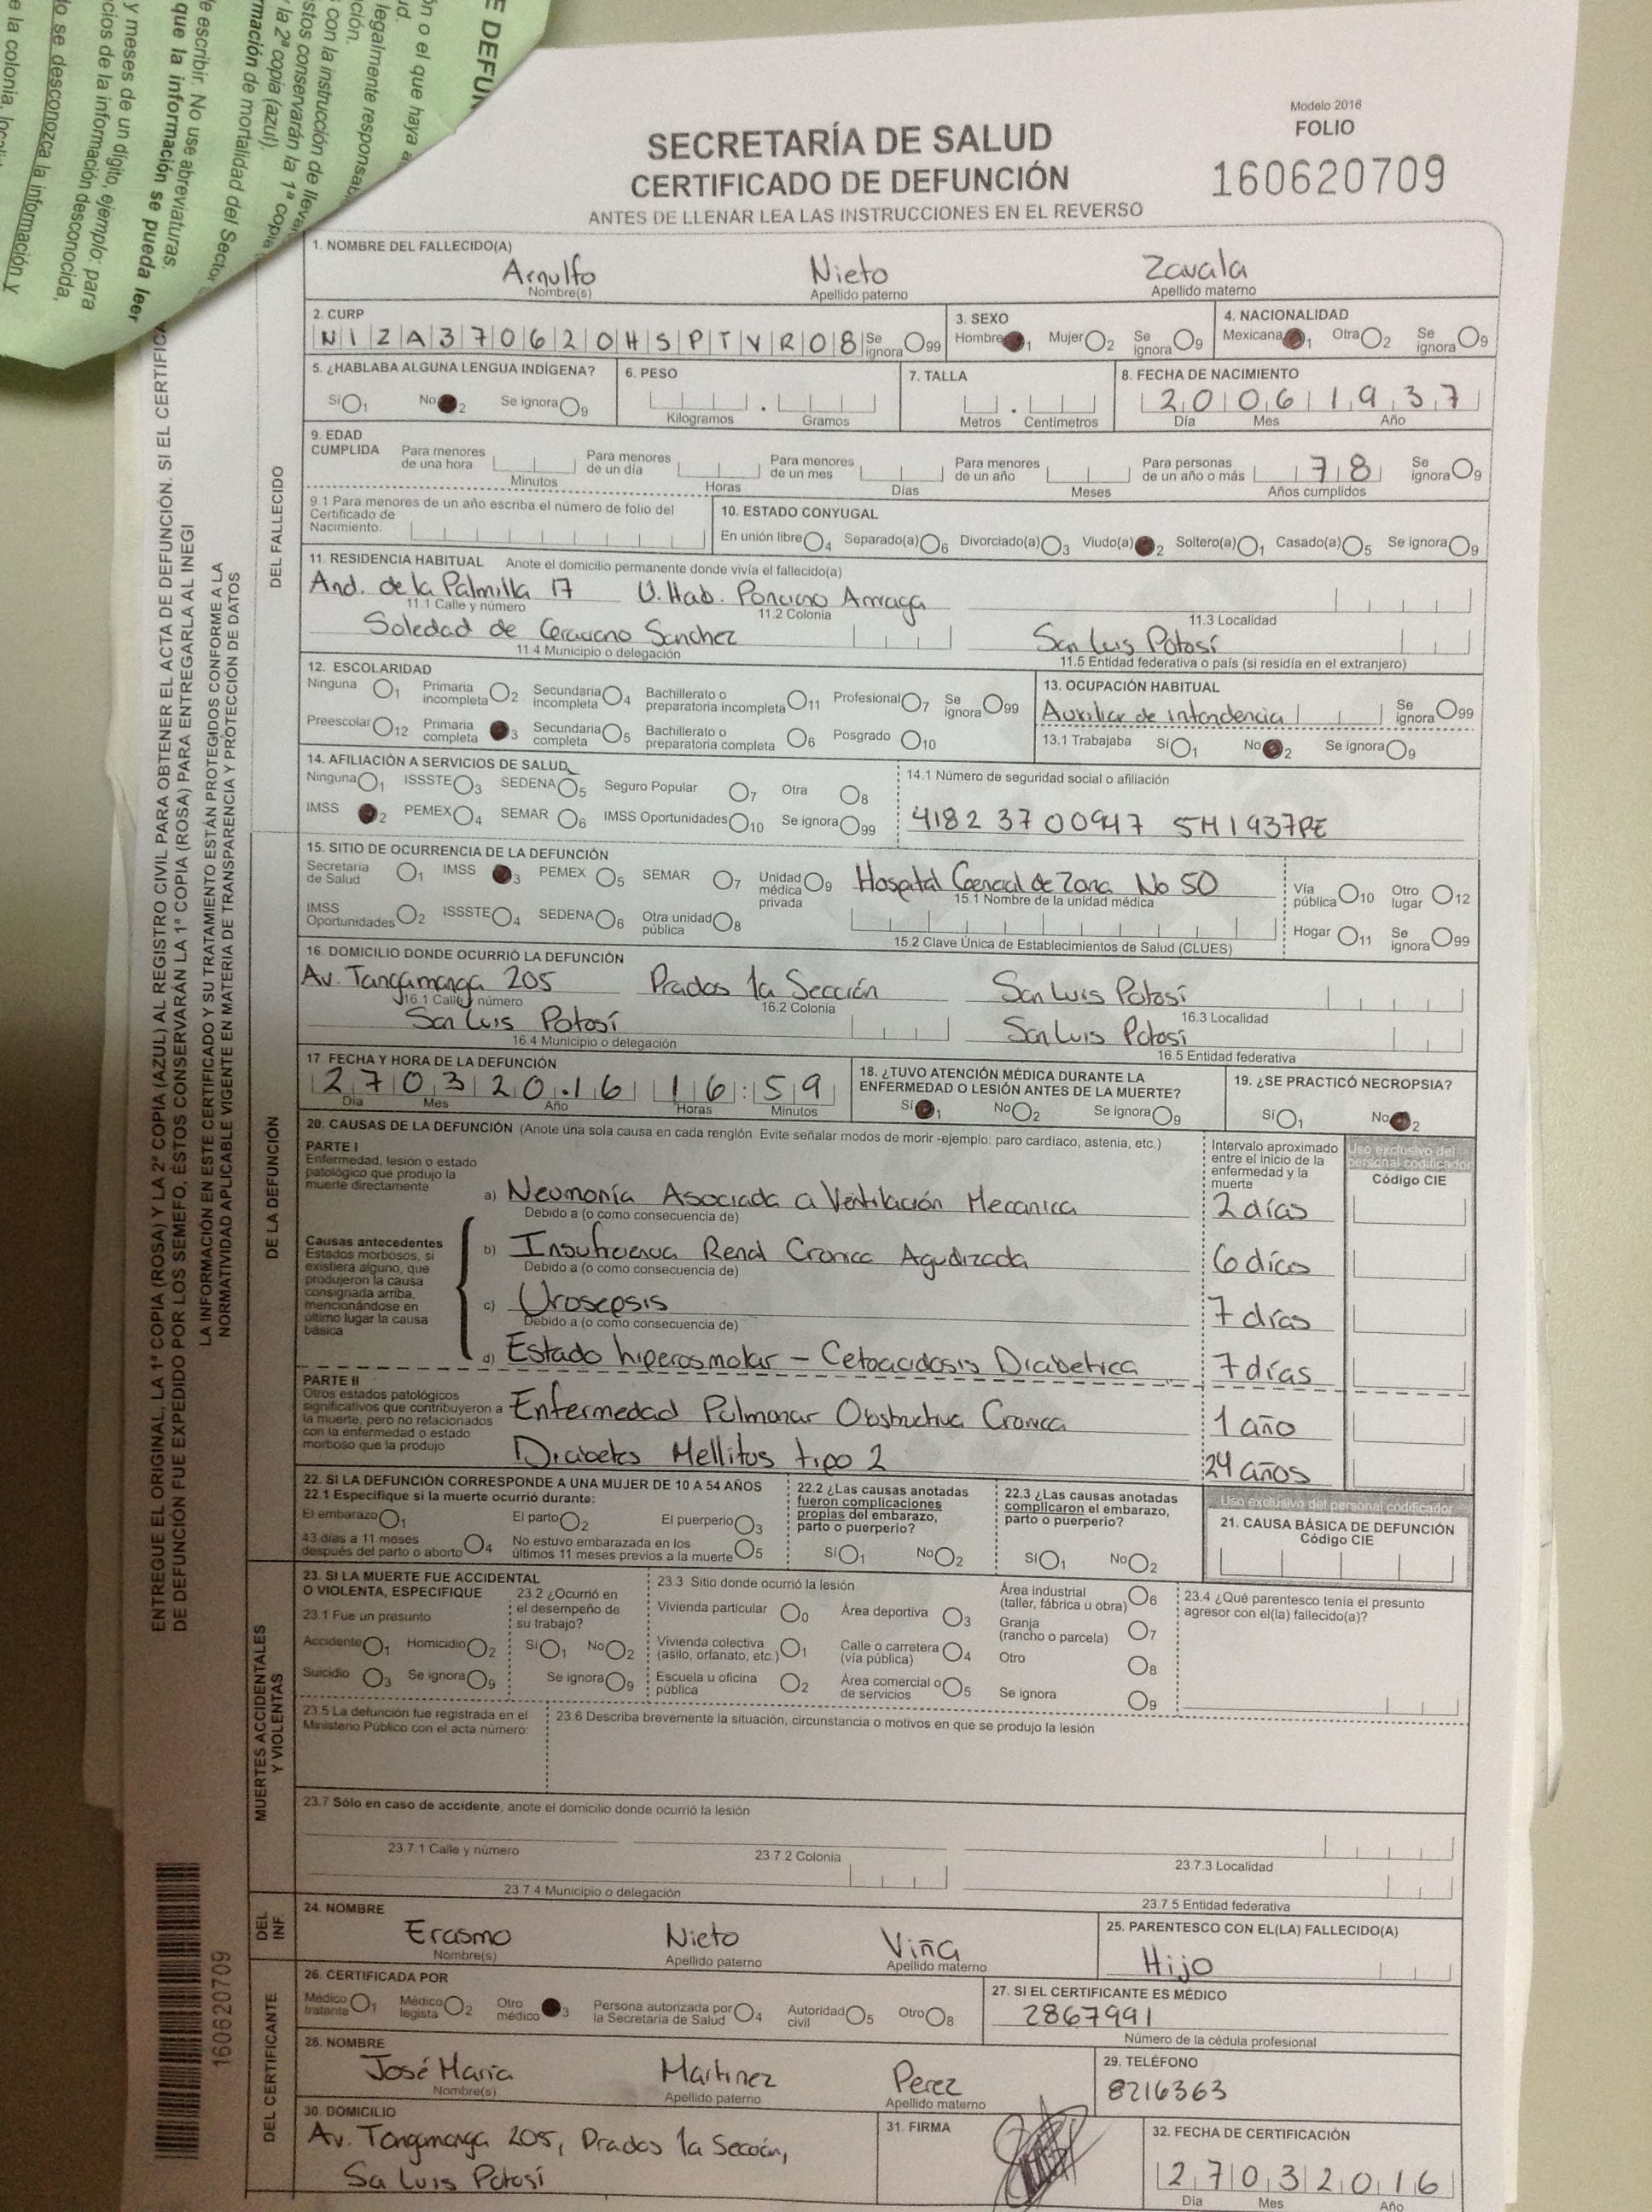 E DEFUN
ón o el que haya a
ud.
legalmente responsab
ción.
con la instrucción de lleva
stos conservarán la 1ª copia
la 2ª copia (azul).
rmación de mortalidad del Sector
e escribir. No use abreviaturas.
que la información se pueda leer
y meses de un dígito, ejemplo: para
cios de la información desconocida,
do se desconozca la información y
e la colonia, localid
Modelo 2016
FOLIO
160620709
SECRETARÍA DE SALUD
CERTIFICADO DE DEFUNCIÓN
ANTES DE LLENAR LEA LAS INSTRUCCIONES EN EL REVERSO
ENTREGUE EL ORIGINAL, LA 1ª COPIA (ROSA) Y LA 2ª COPIA (AZUL) AL REGISTRO CIVIL PARA OBTENER EL ACTA DE DEFUNCIÓN. SI EL CERTIFICA
DE DEFUNCIÓN FUE EXPEDIDO POR LOS SEMEFO, ÉSTOS CONSERVARÁN LA 1ª COPIA (ROSA) PARA ENTREGARLA AL INEGI
LA INFORMACIÓN EN ESTE CERTIFICADO Y SU TRATAMIENTO ESTÁN PROTEGIDOS CONFORME A LA
NORMATIVIDAD APLICABLE VIGENTE EN MATERIA DE TRANSPARENCIA Y PROTECCIÓN DE DATOS
DEL FALLECIDO
1. NOMBRE DEL FALLECIDO(A)
Arnulfo Nieto Zavala
Nombre(s) Apellido paterno Apellido materno
2. CURP 3. SEXO 4. NACIONALIDAD
NIZA370620HSPTVR08 Se ignora 99 Hombre 1 Mujer 2 Se ignora 9 Mexicana 1 Otra 2 Se ignora 9
5. ¿HABLABA ALGUNA LENGUA INDÍGENA? 6. PESO 7. TALLA 8. FECHA DE NACIMIENTO
Sí 1 No 2 Se ignora 9 20061937
Kilogramos Gramos Metros Centímetros Día Mes Año
9. EDAD CUMPLIDA Para menores de una hora Para menores de un día Para menores de un mes Para menores de un año Para personas de un año o más 78 Se ignora 9
Minutos Horas Días Meses Años cumplidos
9.1 Para menores de un año escriba el número de folio del Certificado de Nacimiento.
10. ESTADO CONYUGAL
En unión libre 4 Separado(a) 6 Divorciado(a) 3 Viudo(a) 2 Soltero(a) 1 Casado(a) 5 Se ignora 9
11. RESIDENCIA HABITUAL Anote el domicilio permanente donde vivía el fallecido(a)
And. de la Palmilla 17 U. Hab. Ponciano Arriaga
11.1 Calle y número 11.2 Colonia 11.3 Localidad
Soledad de Graciano Sanchez San Luis Potosí
11.4 Municipio o delegación 11.5 Entidad federativa o país (si residía en el extranjero)
12. ESCOLARIDAD 13. OCUPACIÓN HABITUAL
Ninguna 1 Primaria incompleta 2 Secundaria incompleta 4 Bachillerato o preparatoria incompleta 11 Profesional 7 Se ignora 99
Auxiliar de intendencia Se ignora 99
Preescolar 12 Primaria completa 3 Secundaria completa 5 Bachillerato o preparatoria completa 6 Posgrado 10
13.1 Trabajaba Sí 1 No 2 Se ignora 9
14. AFILIACIÓN A SERVICIOS DE SALUD 14.1 Número de seguridad social o afiliación
Ninguna 1 ISSSTE 3 SEDENA 5 Seguro Popular 7 Otra 8
IMSS 2 PEMEX 4 SEMAR 6 IMSS Oportunidades 10 Se ignora 99
4182 37 00947 5M1937PE
DE LA DEFUNCIÓN
15. SITIO DE OCURRENCIA DE LA DEFUNCIÓN
Secretaría de Salud 1 IMSS 3 PEMEX 5 SEMAR 7 Unidad médica privada 9 Hospital General de Zona No 50 Vía pública 10 Otro lugar 12
15.1 Nombre de la unidad médica
IMSS Oportunidades 2 ISSSTE 4 SEDENA 6 Otra unidad pública 8 Hogar 11 Se ignora 99
15.2 Clave Única de Establecimientos de Salud (CLUES)
16. DOMICILIO DONDE OCURRIÓ LA DEFUNCIÓN
Av. Tangamanga 205 Prados 1a Sección San Luis Potosí
16.1 Calle y número 16.2 Colonia 16.3 Localidad
San Luis Potosí San Luis Potosí
16.4 Municipio o delegación 16.5 Entidad federativa
17. FECHA Y HORA DE LA DEFUNCIÓN
27032016 16:59
Día Mes Año Horas Minutos
18. ¿TUVO ATENCIÓN MÉDICA DURANTE LA ENFERMEDAD O LESIÓN ANTES DE LA MUERTE?
Sí 1 No 2 Se ignora 9
19. ¿SE PRACTICÓ NECROPSIA?
Sí 1 No 2
20. CAUSAS DE LA DEFUNCIÓN (Anote una sola causa en cada renglón. Evite señalar modos de morir -ejemplo: paro cardíaco, astenia, etc.)
Intervalo aproximado entre el inicio de la enfermedad y la muerte
Uso exclusivo del personal codificador
Código CIE
PARTE I
Enfermedad, lesión o estado patológico que produjo la muerte directamente
a) Neumonía Asociada a Ventilación Mecanica 2 días
Debido a (o como consecuencia de)
Causas antecedentes
Estados morbosos, si existiera alguno, que produjeron la causa consignada arriba, mencionándose en último lugar la causa básica
b) Insuficiencia Renal Cronica Agudizada 6 días
Debido a (o como consecuencia de)
c) Urosepsis 7 días
Debido a (o como consecuencia de)
d) Estado hiperosmolar – Cetoacidosis Diabetica 7 días
PARTE II
Otros estados patológicos significativos que contribuyeron a la muerte, pero no relacionados con la enfermedad o estado morboso que la produjo
Enfermedad Pulmonar Obstructiva Cronica 1 año
Diabetes Mellitus tipo 2 24 años
22. SI LA DEFUNCIÓN CORRESPONDE A UNA MUJER DE 10 A 54 AÑOS
22.1 Especifique si la muerte ocurrió durante:
El embarazo 1 El parto 2 El puerperio 3
43 días a 11 meses después del parto o aborto 4 No estuvo embarazada en los últimos 11 meses previos a la muerte 5
22.2 ¿Las causas anotadas fueron complicaciones propias del embarazo, parto o puerperio?
Sí 1 No 2
22.3 ¿Las causas anotadas complicaron el embarazo, parto o puerperio?
Sí 1 No 2
Uso exclusivo del personal codificador
21. CAUSA BÁSICA DE DEFUNCIÓN
Código CIE
MUERTES ACCIDENTALES Y VIOLENTAS
23. SI LA MUERTE FUE ACCIDENTAL O VIOLENTA, ESPECIFIQUE
23.1 Fue un presunto
Accidente 1 Homicidio 2
Suicidio 3 Se ignora 9
23.2 ¿Ocurrió en el desempeño de su trabajo?
Sí 1 No 2
Se ignora 9
23.3 Sitio donde ocurrió la lesión
Vivienda particular 0 Área deportiva 3 Área industrial (taller, fábrica u obra) 6
Granja (rancho o parcela) 7
Vivienda colectiva (asilo, orfanato, etc.) 1 Calle o carretera (vía pública) 4 Otro 8
Escuela u oficina pública 2 Área comercial o de servicios 5 Se ignora 9
23.4 ¿Qué parentesco tenía el presunto agresor con el(la) fallecido(a)?
23.5 La defunción fue registrada en el Ministerio Público con el acta número:
23.6 Describa brevemente la situación, circunstancia o motivos en que se produjo la lesión
23.7 Sólo en caso de accidente, anote el domicilio donde ocurrió la lesión
23.7.1 Calle y número 23.7.2 Colonia 23.7.3 Localidad
23.7.4 Municipio o delegación 23.7.5 Entidad federativa
DEL INF.
24. NOMBRE 25. PARENTESCO CON EL(LA) FALLECIDO(A)
Erasmo Nieto Viña Hijo
Nombre(s) Apellido paterno Apellido materno
DEL CERTIFICANTE
26. CERTIFICADA POR 27. SI EL CERTIFICANTE ES MÉDICO
Médico tratante 1 Médico legista 2 Otro médico 3 Persona autorizada por la Secretaría de Salud 4 Autoridad civil 5 Otro 8
2867991
Número de la cédula profesional
28. NOMBRE 29. TELÉFONO
José María Martinez Perez 8216363
Nombre(s) Apellido paterno Apellido materno
30. DOMICILIO 31. FIRMA 32. FECHA DE CERTIFICACIÓN
Av. Tangamanga 205, Prados 1a Sección,
Sa Luis Potosí 27032016
Día Mes Año
160620709